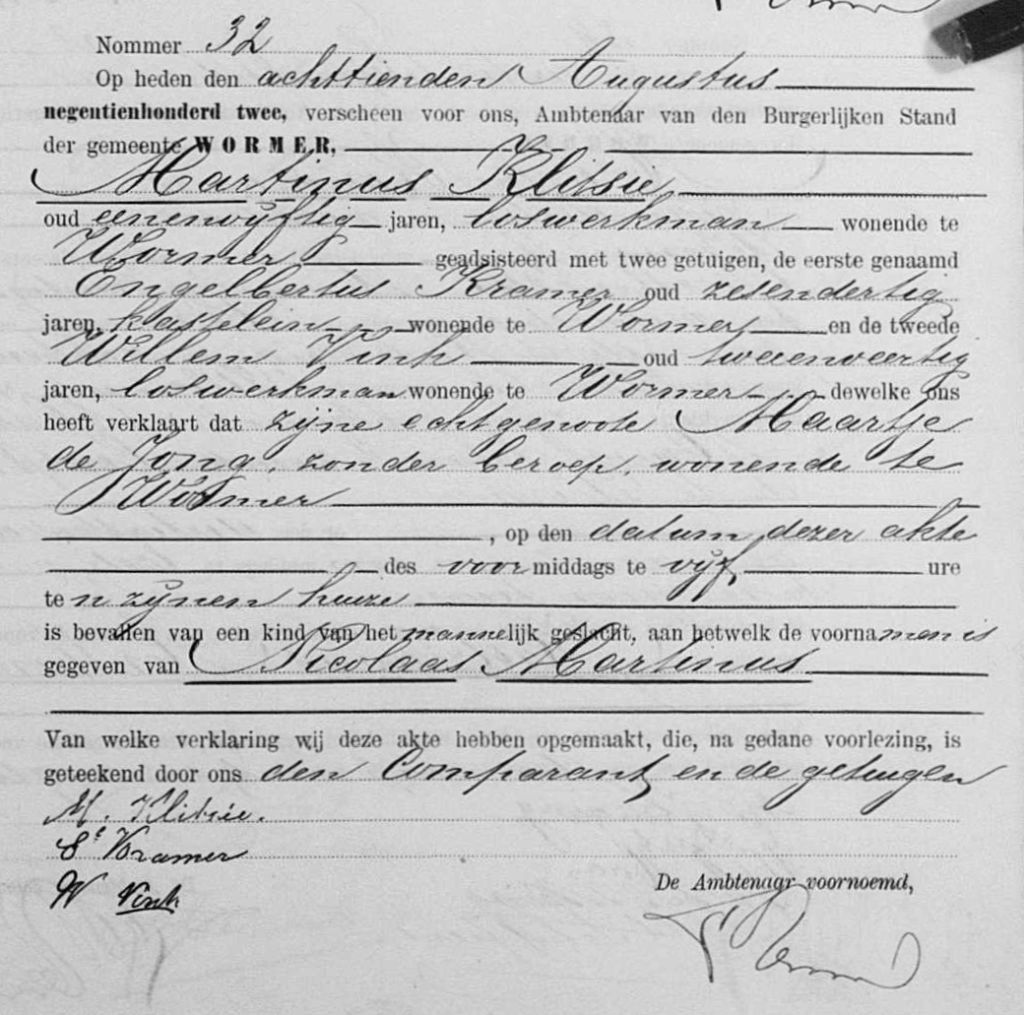 Nommer 32
Op heden den achttienden Augustus
negentienhonderd twee, verscheen voor ons, Ambtenaar van den Burgerlijken Stand
der gemeente WORMER,
Martinus Klitsie,
oud eenenvijftig jaren, loswerkman wonende te
Wormer geadsisteerd met twee getuigen, de eerste genaamd
Engelbertus Kramer oud zesendertig
jaren, kastelein wonende te Wormer en de tweede
Willem Vink oud tweeenveertig
jaren, loswerkman wonende te Wormer dewelke ons
heeft verklaart dat zijne echtgenoote Maartje
de Jong, zonder beroep, wonende te
Wormer
, op den datum dezer akte
des voormiddags te vijf ure
ten zijnen huize
is bevallen van een kind van het mannelijk geslacht, aan hetwelk de voornamen is
gegeven van Nicolaas Martinus
Van welke verklaring wij deze akte hebben opgemaakt, die, na gedane voorlezing, is
geteekend door ons den Comparant en de getuigen
M. Klitsie.
Kramer
W Vink
De Ambtenaar voornoemd,